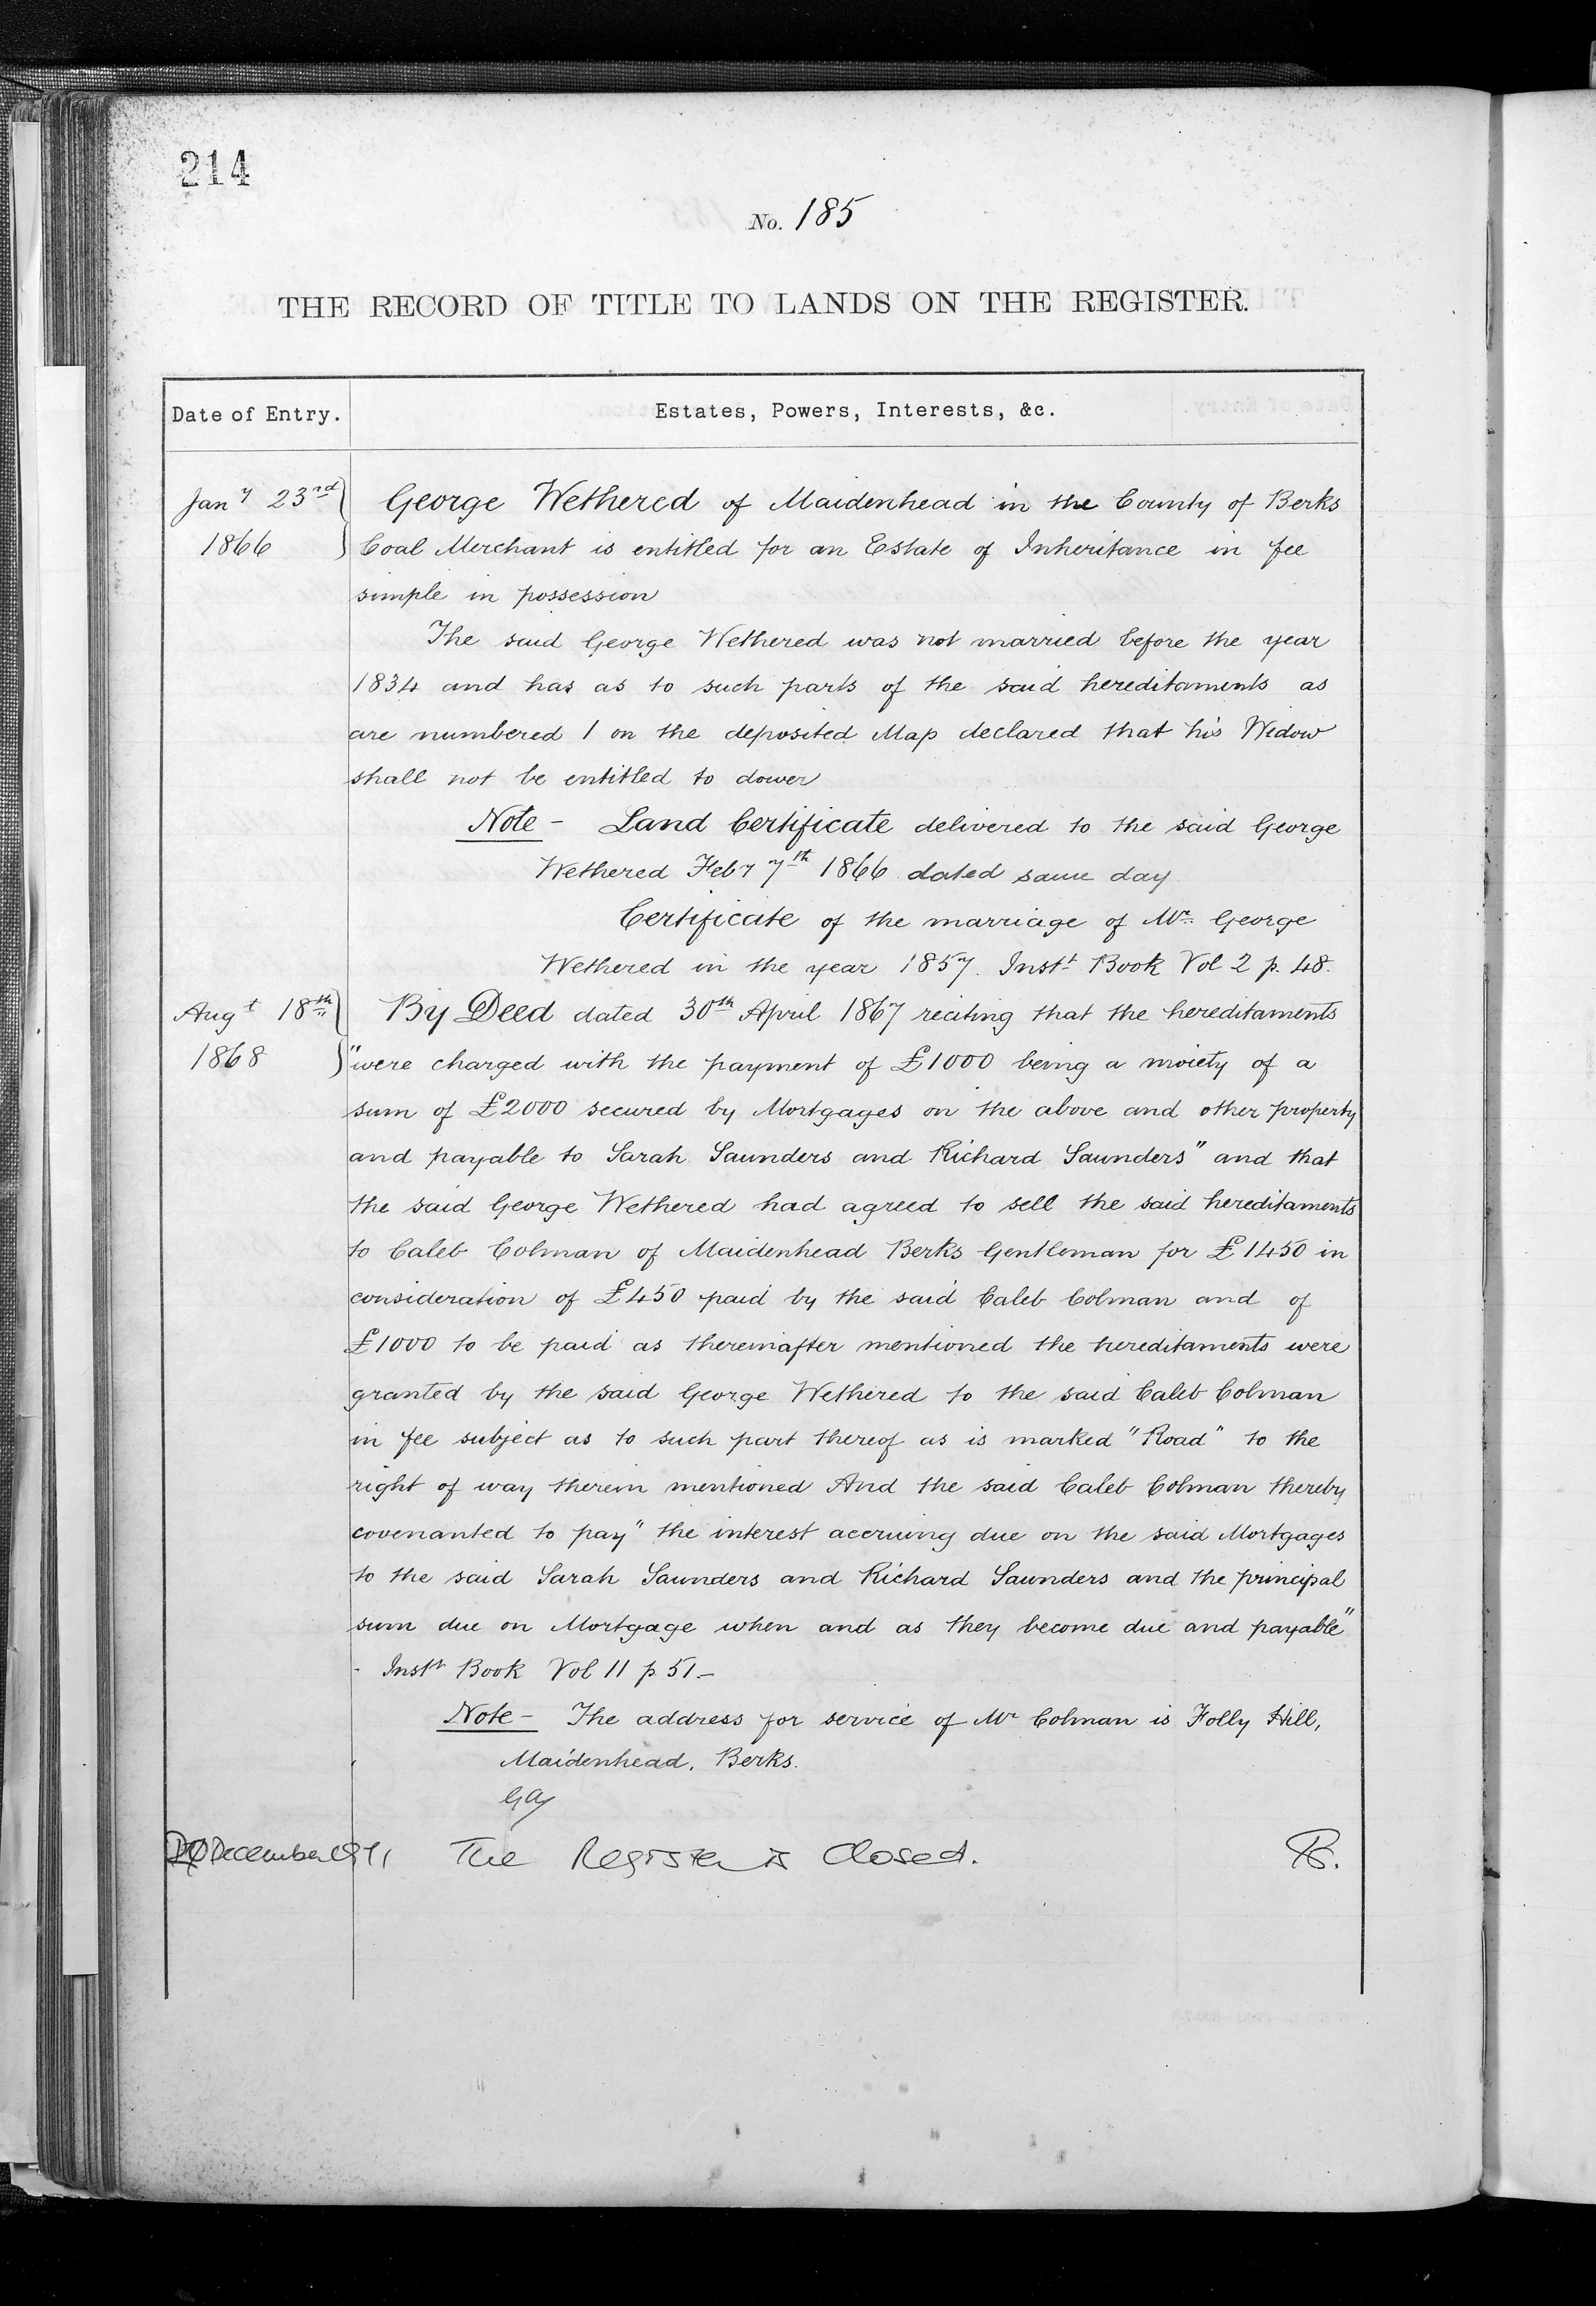 214
No. 185
THE RECORD OF TITLE TO LANDS ON THE REGISTER.
Date of Entry. Estates, Powers, Interests, &c.
Jany 23rd George Wethered of Maidenhead in the County of Berks
1866 Coal Merchant is entitled for an Estate of Inheritance in fee
simple in possession
The said George Wethered was not married before the year
1834 and has as to such parts of the said hereditaments as
are numbered 1 on the deposited Map declared that his Widow
shall not be entitled to dower
Note - Land Certificate delivered to the said George
Wethered Feby 7th 1866 dated same day
Certificate of the marriage of Mr. George
Wethered in the year 1857. Instt Book Vol 2 p. 48.
Augt 18th By Deed dated 30th April 1867 reciting that the hereditaments
1868 "were charged with the payment of £1000 being a moiety of a
sum of £2000 secured by Mortgages on the above and other property
and payable to Sarah Saunders and Richard Saunders" and that
the said George Wethered had agreed to sell the said hereditaments
to Caleb Colman of Maidenhead Berks Gentleman for £1450 in
consideration of £450 paid by the said Caleb Colman and of
£1000 to be paid as thereinafter mentioned the hereditaments were
granted by the said George Wethered to the said Caleb Colman
in fee subject as to such part thereof as is marked "Road" to the
right of way therein mentioned And the said Caleb Colman thereby
covenanted to pay "the interest accruing due on the said Mortgages
to the said Sarah Saunders and Richard Saunders and the principal
sum due on Mortgage when and as they become due and payable"
Instt Book Vol 11 p. 51-
Note - The address for service of Mr Colman is Folly Hill,
Maidenhead. Berks.
December The Register is Closed.